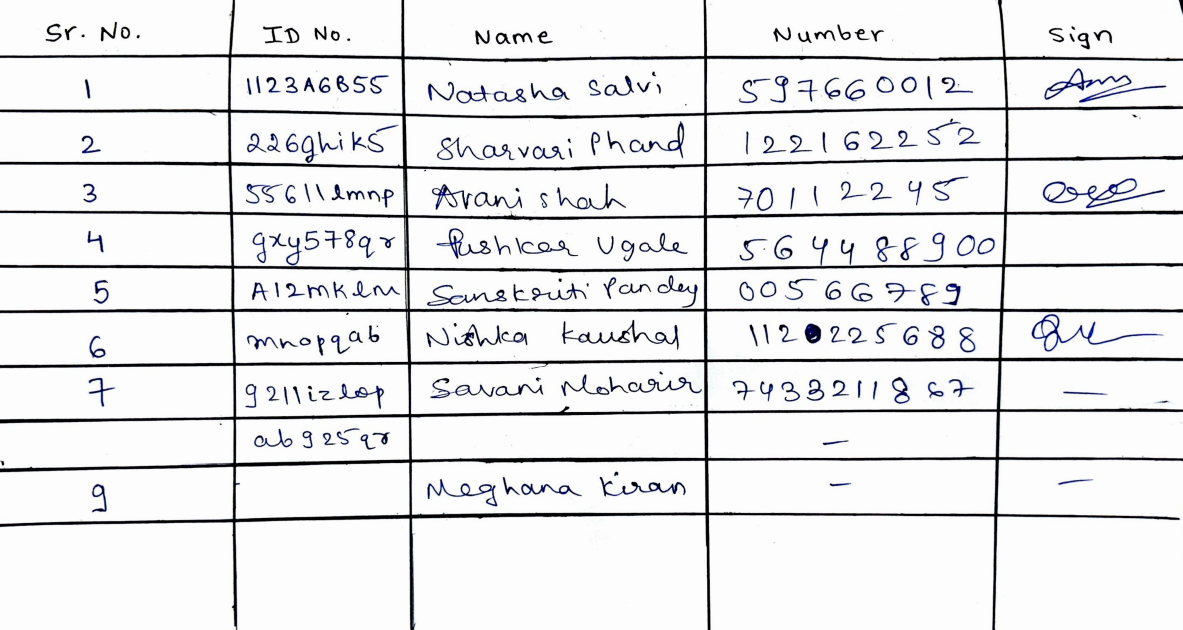 Sr. No. ID No. Name Number Sign
1 1123A6B55 Natasha Salvi 597660012
2 226ghik5 Sharvari Phand 122162252
3 55611lmnp Avani shah 70112245
4 gxy578qr Pushkar Ugale 564488900
5 A12mklm Sanskriti Pandey 00566789
6 mnopqab Nishka Kaushal 112 225688
7 9211izlop Savani Moharir 7433211867 —
ab925qr —
9 Meghana Kiran — —